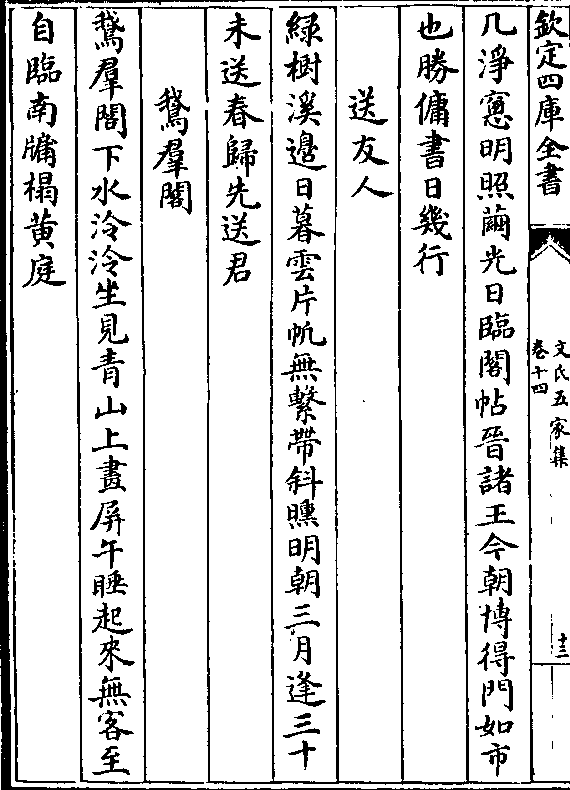 欽定四庫全書
文氏五家集
卷十四
十三
几淨窓明照繭光日臨閣帖晉諸王今朝博得門如市
也勝傭書日幾行
送友人
綠樹溪邊日暮雲片帆無繫帶斜曛明朝三月逢三十
未送春歸先送君
鵞羣閣
鵞羣閣下水泠泠坐見青山上畫屏午睡起來無客至
自臨南牗榻黄庭